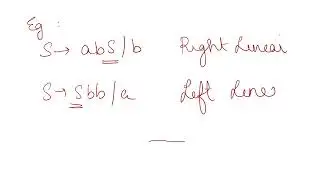 Eg :
S → abS / b Right Linear
S → Sbb / a Left Linear